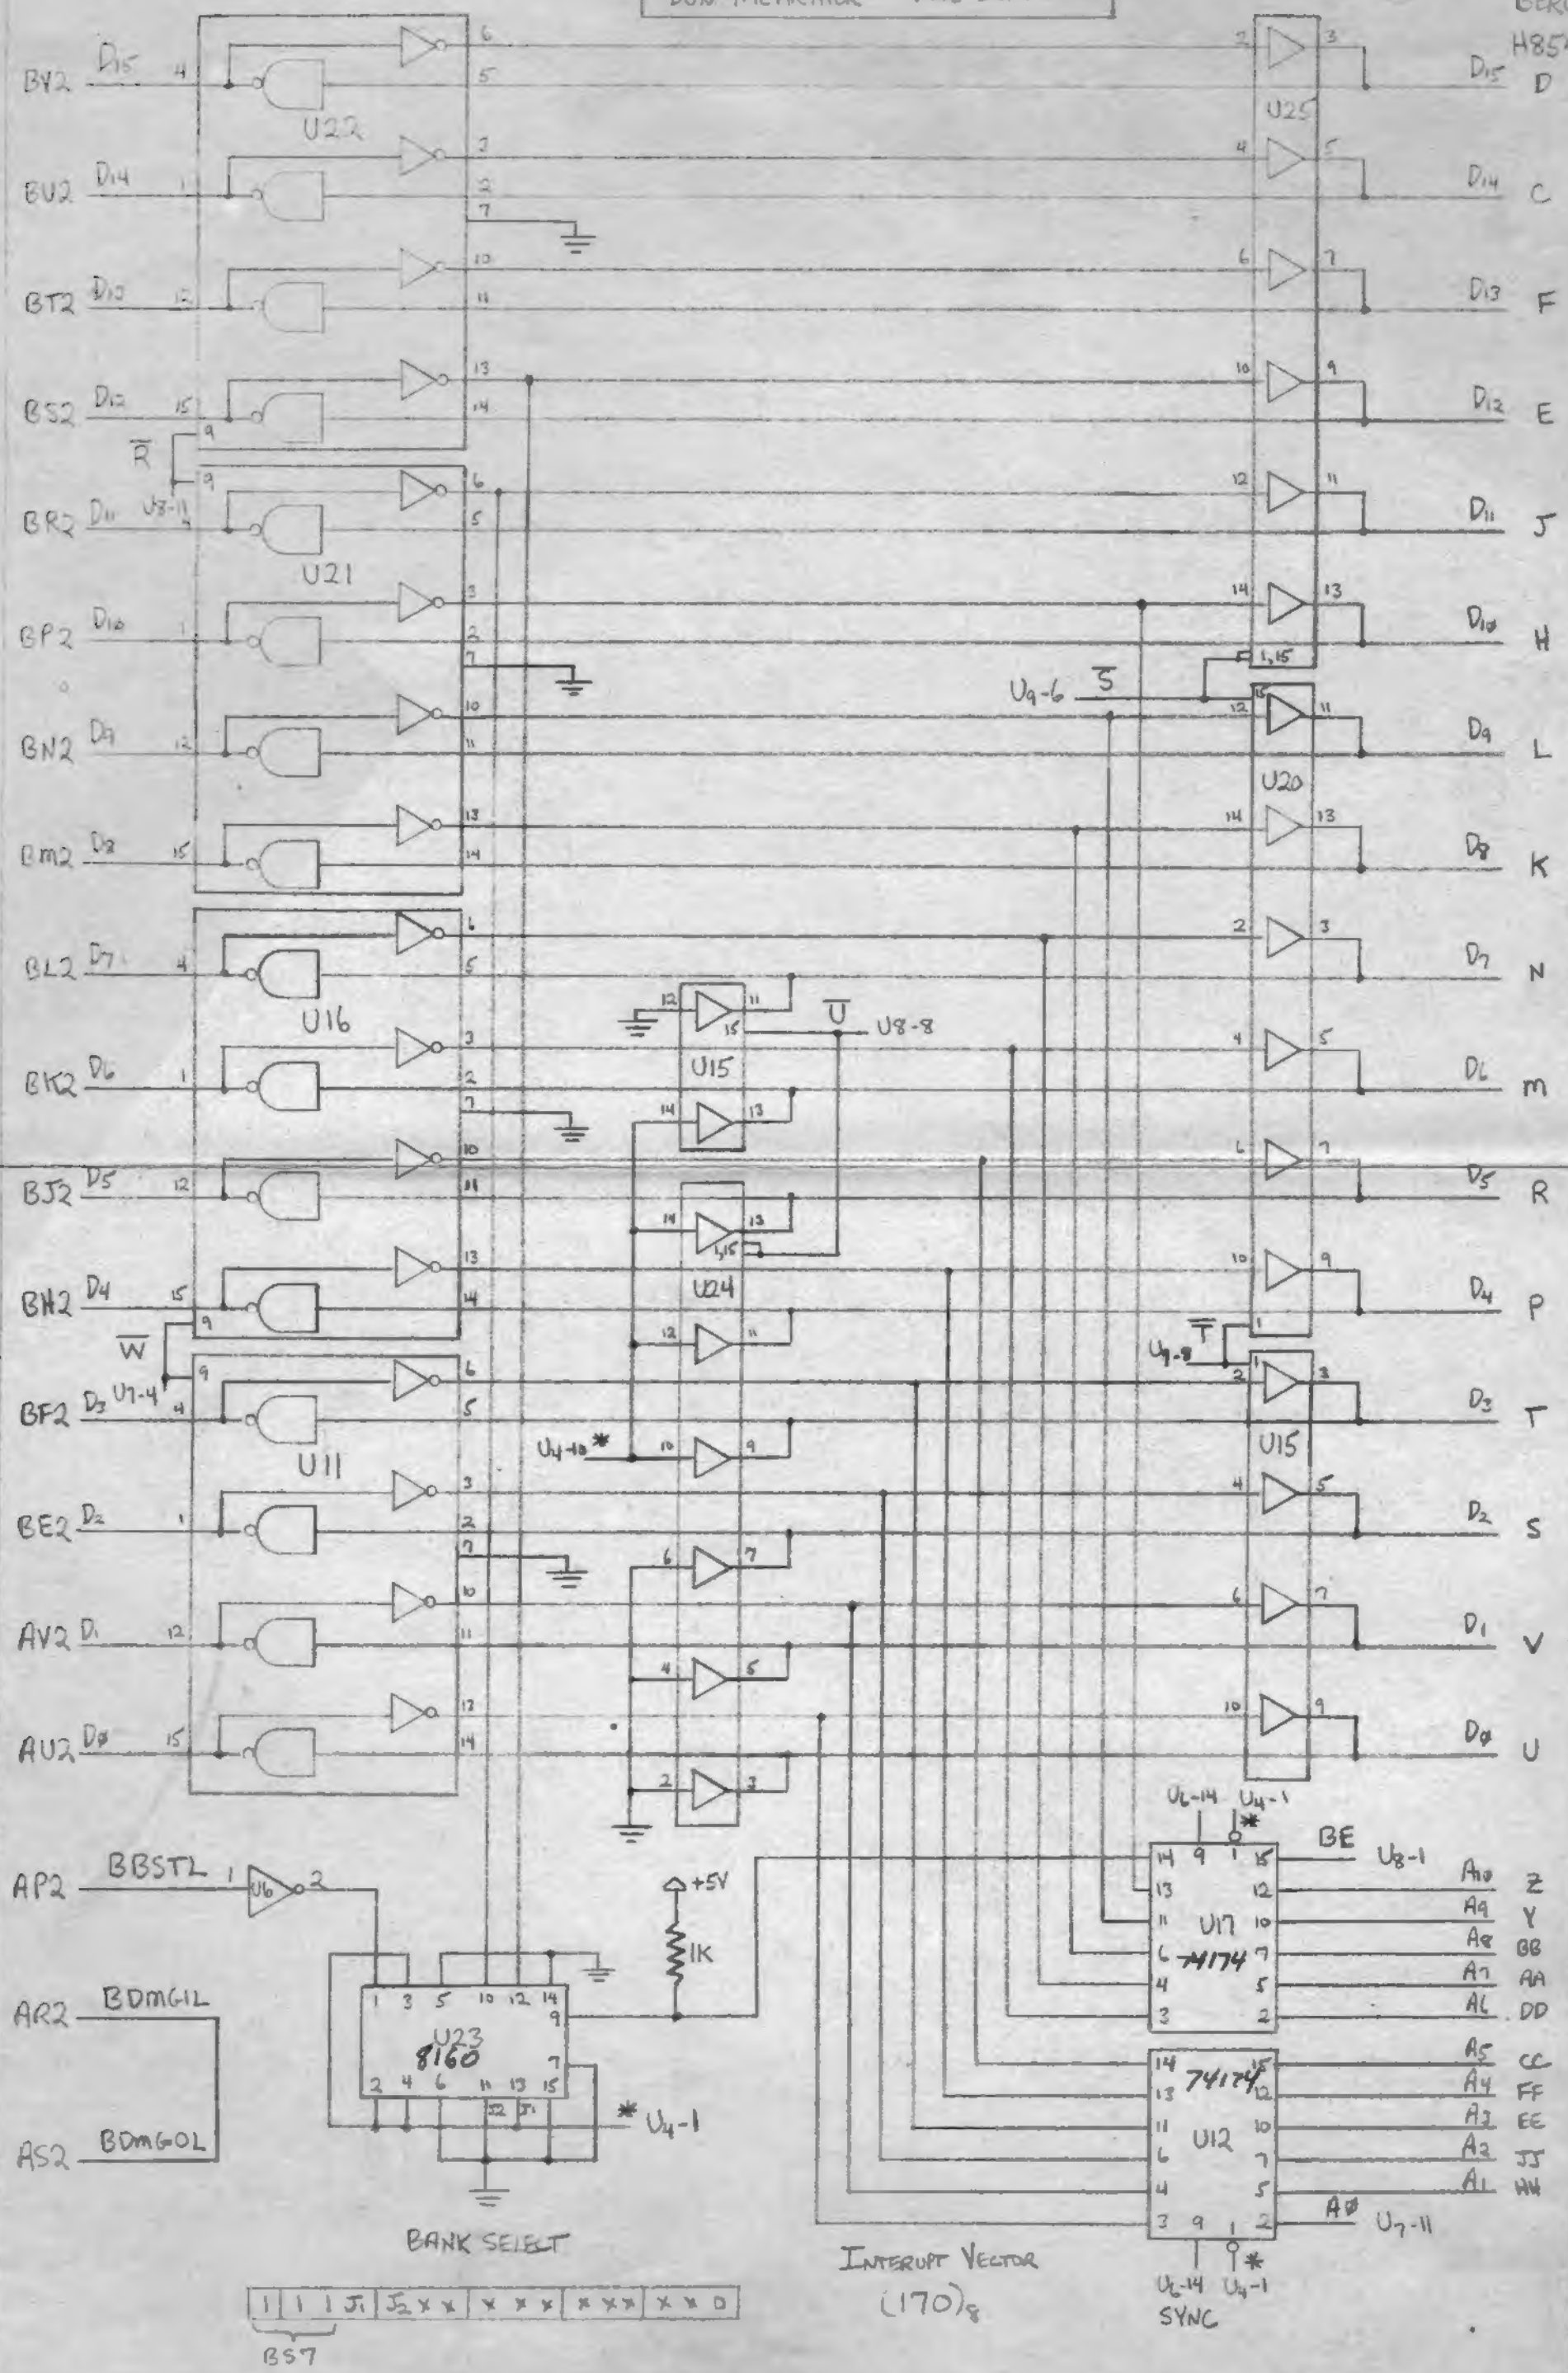 BV2 D15 4 6 5 2 3 D15 D
H85
U22 U25
BU2 D14 1 3 2 7 4 5 D14 C
BT2 12 10 11 6 7 D13 F
BS2 D12 15 13 14 10 9 D12 E
R 9
9
BR2 D11 U8-11 6 5 12 11 D11 J
U21
BP2 D10 1 3 2 7 14 13 D10 H
1,15
U9-6 S
BN2 D9 12 10 11 15 12 11 D9 L
U20
BM2 D8 15 13 14 14 13 D8 K
BL2 D7 4 6 5 2 3 D7 N
U16
12 11 15 U U8-8
U15
BK2 D6 1 3 2 7 14 13 4 5 D6 M
BJ2 D5 12 10 11 14 13 1,15 6 7 D5 R
U24
BH2 D4 15 13 14 12 11 10 9 D4 P
W 9
T 1
U9-8
9
BF2 D3 U7-4 4 6 5 1 2 3 D3 T
U11 U4-10* 10 9 U15
BE2 D2 1 3 2 7 6 7 4 5 D2 S
AV2 D1 12 10 11 4 5 6 7 D1 V
AU2 DØ 15 13 14 2 3 10 9 DØ U
U6-14 U4-1
*
AP2 BBS7L 1 U6 2
+5V
1K
14 9 1 15 BE U8-1
13 12 A10 Z
11 U17 10 A9 Y
6 74174 7 A8 BB
4 5 A7 AA
3 2 A6 DD
AR2 BDMGIL
1 3 5 10 12 14
9
U23
8160
7
2 4 6 11 13 15
J2 J1
* U4-1
AS2 BDMGOL
14 74174 15 A5 CC
13 12 A4 FF
11 10 A3 EE
6 U12 7 A2 JJ
4 5 A1 HH
3 9 1 2 AØ U7-11
*
U6-14 U4-1
SYNC
BANK SELECT
INTERUPT VECTOR
(170)8
1 1 1 J1 J2 X X X X X X X X X X 0
BS7